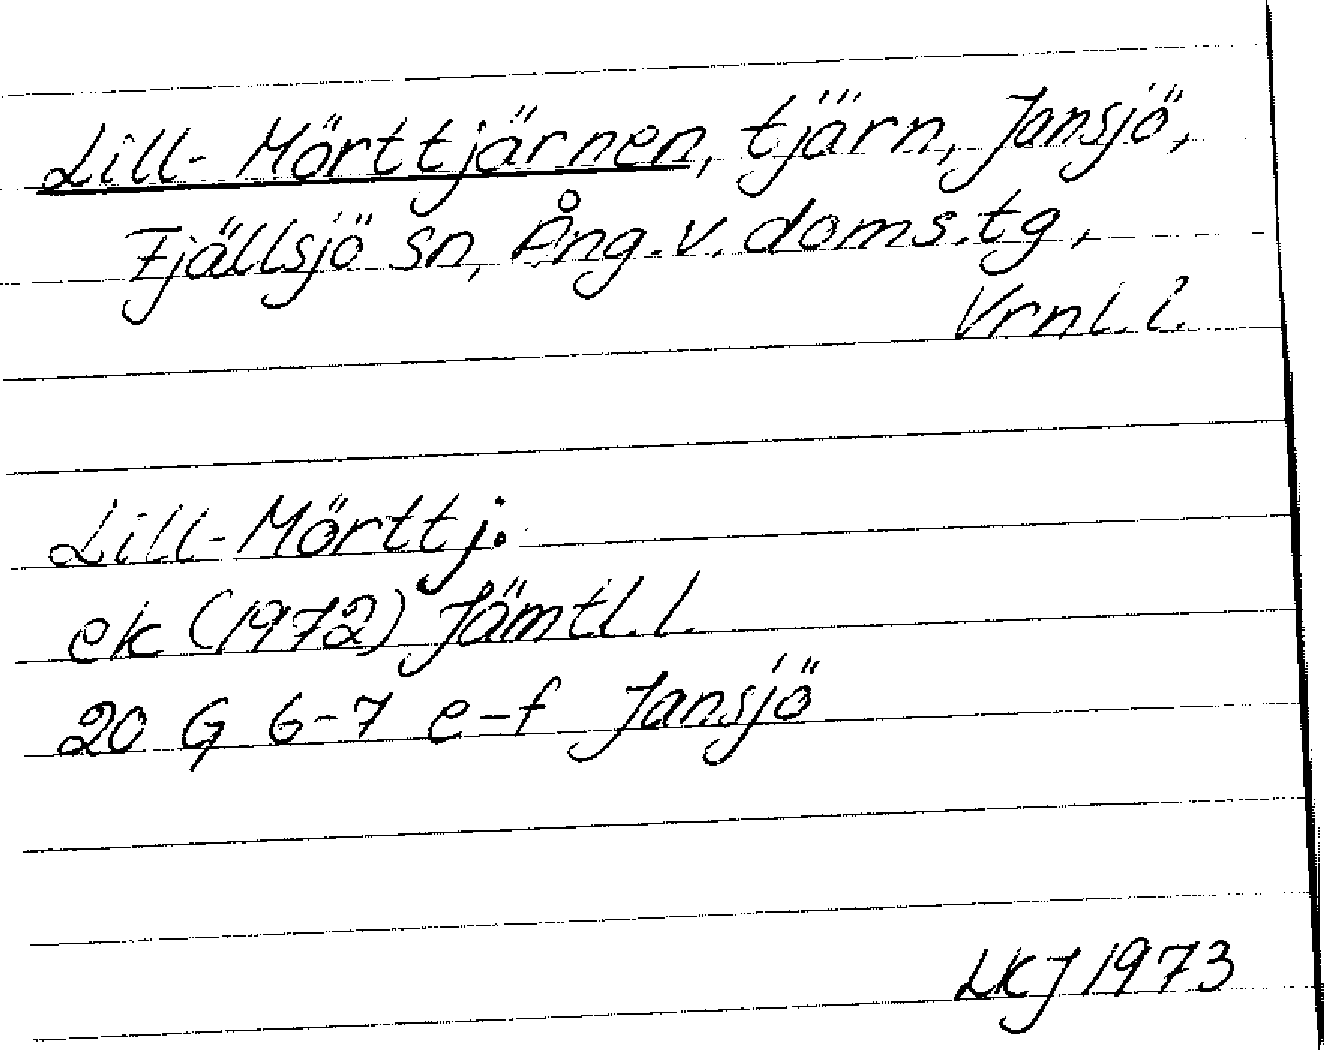 Lill-Mörttjärnen, tjärn, Jansjö,
Fjällsjö sn, Ång.v.doms.tg,
Vrnl.l.
Lill-Mörttj.
ek (1972) Jämtl.l.
20 G 6-7 e-f Jansjö
LKJ 1973